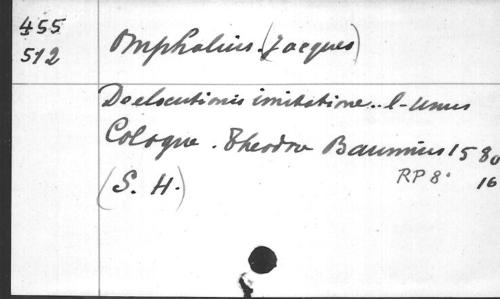 455
512
Omphalius (Jacques)
De elocutionis imitatione.. l-unus
Cologne. Theodor Baumius 1580
RP 8° 16
(S. H.)